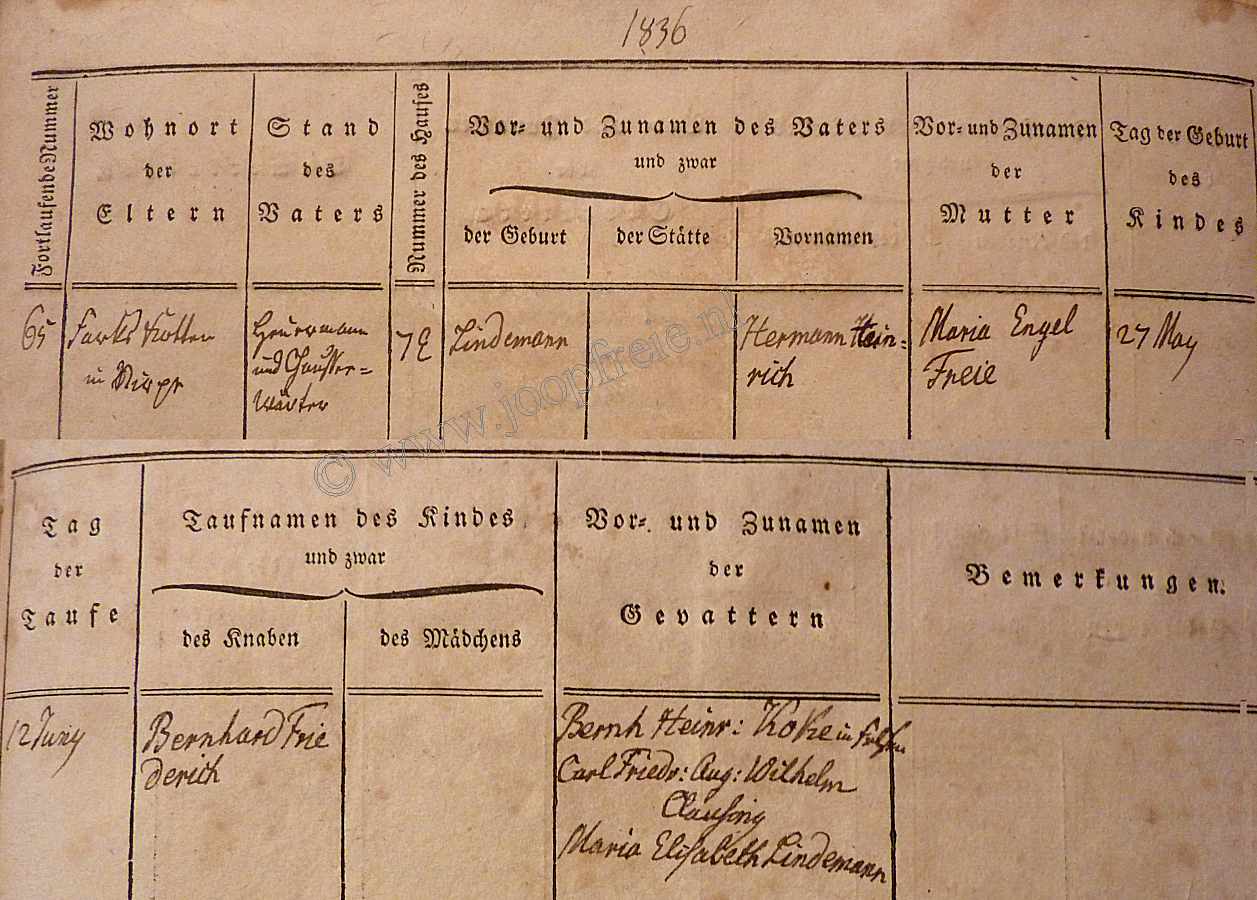 1836
Fortlaufende Nummer
Wohnort
der
Eltern
Stand
des
Vaters
Nummer des Hauses
Vor- und Zunamen des Vaters
und zwar
der Geburt
der Stätte
Vornamen
Vor- und Zunamen
der
Mutter
Tag der Geburt
des
Kindes
65
Kotten
in
Heuermann
und Chaussee-
wärter
Lindemann
Hermann Hein-
rich
Maria Engel
Freie
27 May
© www.joopfreie.nl
Tag
der
Taufe
Taufnamen des Kindes
und zwar
des Knaben
des Mädchens
Vor- und Zunamen
der
Gevattern
Bemerkungen.
12 Juny
Bernhard Frie
derich
Bernh Heinr: Koke in
Carl Friedr: Aug: Wilhelm
Clausing
Maria Elisabeth Lindemann